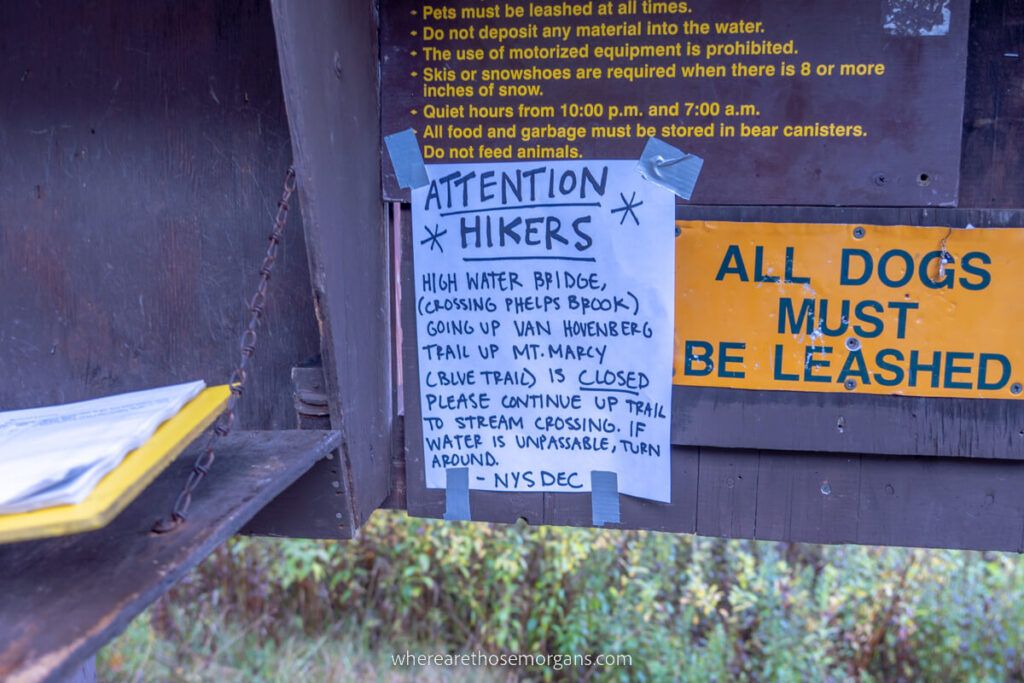 Pets must be leashed at all times.
Do not deposit any material into the water.
The use of motorized equipment is prohibited.
Skis or snowshoes are required when there is 8 or more
inches of snow.
Quiet hours from 10:00 p.m. and 7:00 a.m.
All food and garbage must be stored in bear canisters.
Do not feed animals.
ATTENTION
* HIKERS *
HIGH WATER BRIDGE,
(CROSSING PHELPS BROOK)
GOING UP VAN HOVENBERG
TRAIL UP MT. MARCY
(BLUE TRAIL) IS CLOSED
PLEASE CONTINUE UP TRAIL
TO STREAM CROSSING. IF
WATER IS UNPASSABLE, TURN
AROUND.
- NYSDEC
ALL DOGS
MUST
BE LEASHED
wherearethosemorgans.com